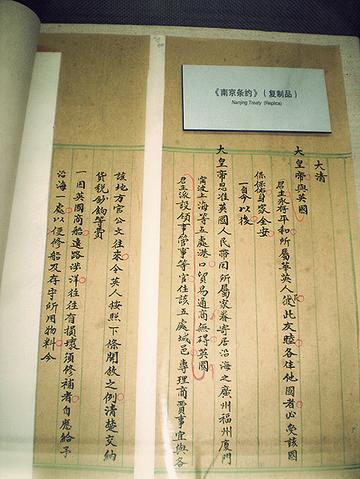 《南京条约》（复制品）
Nanjing Treaty (Replica)
大清
大皇帝與英國
君主永存平和所屬華英人彼此友睦各住他國者必受該國
保佑身家全安
一自今以後
大皇帝恩准英國人民帶同所屬家眷寄居沿海之廣州福州廈門
寧波上海等五處港口貿易通商無礙英國
君主派設領事管事等官住該五處城邑專理商賈事宜與各
該地方官公文往來令英人按照下條開敘之例清楚交納
貨稅鈔餉等費
一因英國商船遠路涉洋往往有損壞須修補者自應給予
沿海一處以便修船及存守所用物料今